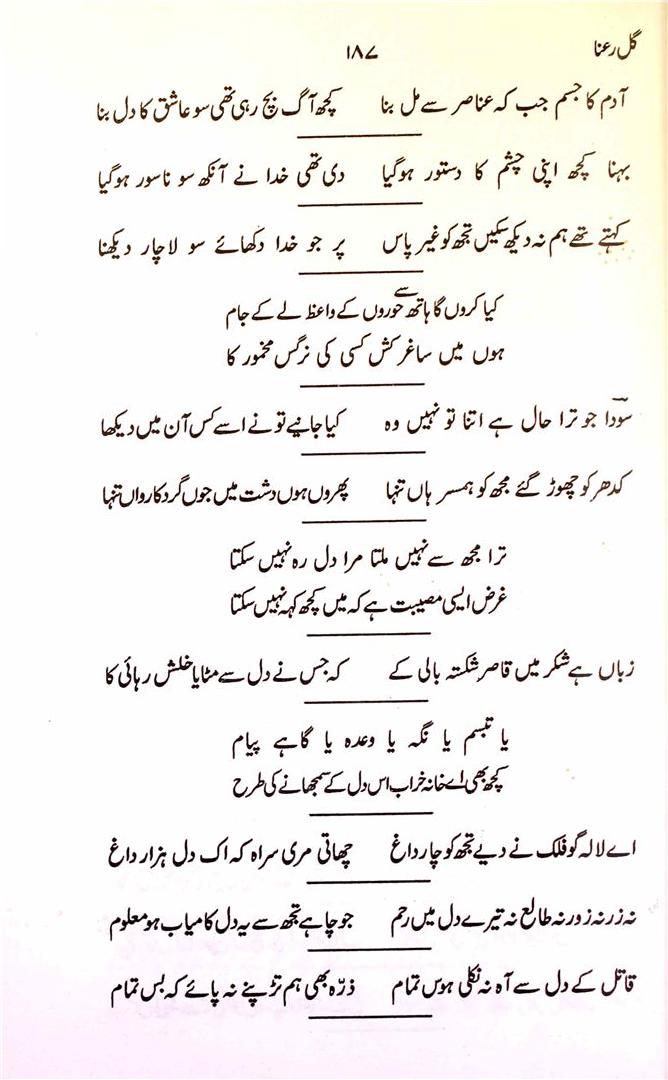 گل رعنا ۱۸۷
آدم کا جسم جب کہ عناصر سے مل بنا کچھ آگ بچ رہی تھی سو عاشق کا دل بنا
بہنا کچھ اپنی چشم کا دستور ہوگیا دی تھی خدا نے آنکھ سو ناسور ہوگیا
کہتے تھے ہم نہ دیکھ سکیں تجھ کو غیر پاس پر جو خدا دکھائے سو لاچار دیکھنا
کیا کروں گا ہاتھ سے حوروں کے واعظ لے کے جام
ہوں میں ساغر کش کسی کی نرگس مخمور کا
سودا جو ترا حال ہے اتنا تو نہیں وہ کیا جانیے تو نے اسے کس آن میں دیکھا
کدھر کو چھوڑ گئے مجھ کو ہمسر ہاں تنہا پھروں ہوں دشت میں جوں گرد کارواں تنہا
ترا مجھ سے نہیں ملتا مرا دل رہ نہیں سکتا
غرض ایسی مصیبت ہے کہ میں کچھ کہہ نہیں سکتا
زباں ہے شکر میں قاصر شکستہ بالی کے کہ جس نے دل سے مٹایا خلش رہائی کا
یا تبسم یا نگہ یا وعدہ یا گاہے پیام
کچھ بھی اے خانہ خراب اس دل کے سمجھانے کی طرح
اے لالہ گو فلک نے دیے تجھ کو چار داغ چھاتی مری سراہ کہ اک دل ہزار داغ
نہ زر نہ زور نہ طالع نہ تیرے دل میں رحم جو چاہے تجھ سے یہ دل کامیاب ہو معلوم
قاتل کے دل سے آہ نہ نکلی ہوس تمام ذرّہ بھی ہم تڑپنے نہ پائے کہ بس تمام